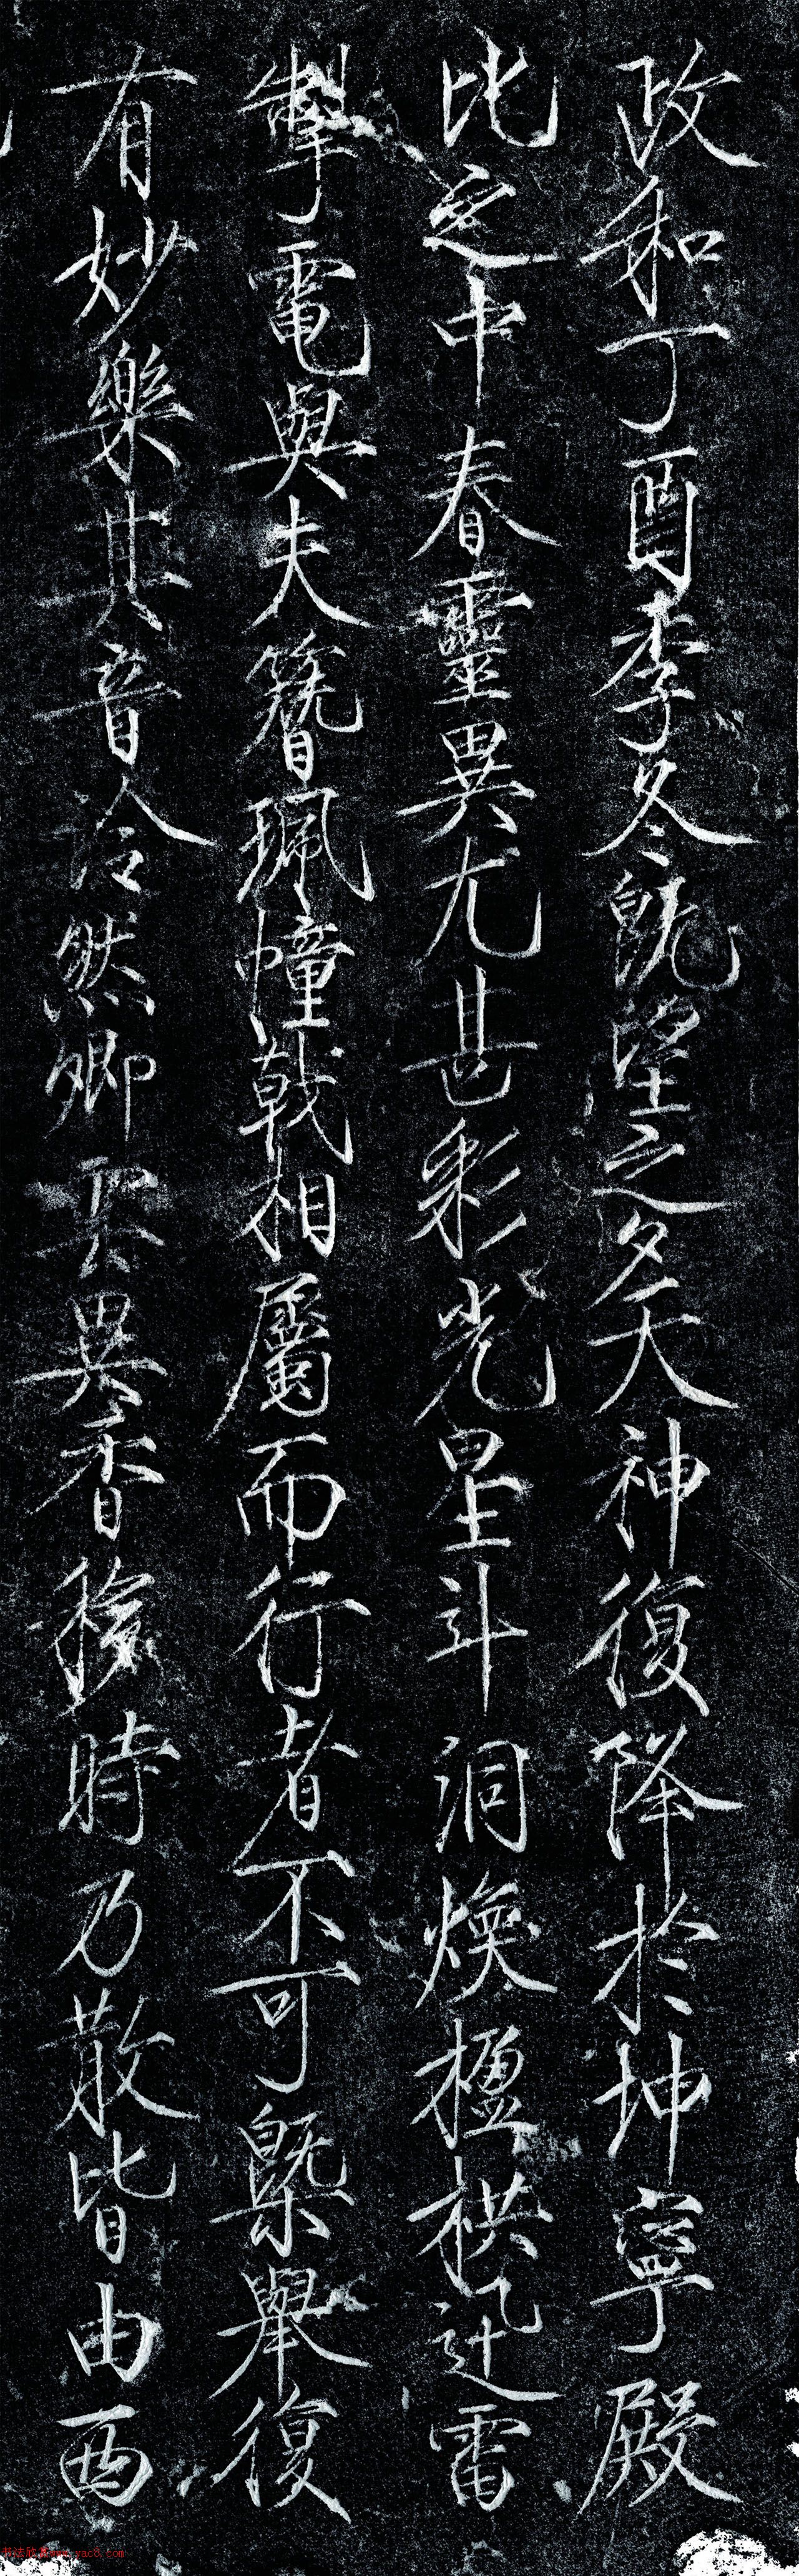 政和丁酉季冬既望之夕天神復降於坤寧殿
比之中春靈異尤甚彩光星斗洞煥楹栱迅雷
掣電與夫簪珮幢戟相屬而行者不可槩舉復
有妙樂其音泠然卿雲異香移時乃散皆由西
书法欣赏www.yac8.com